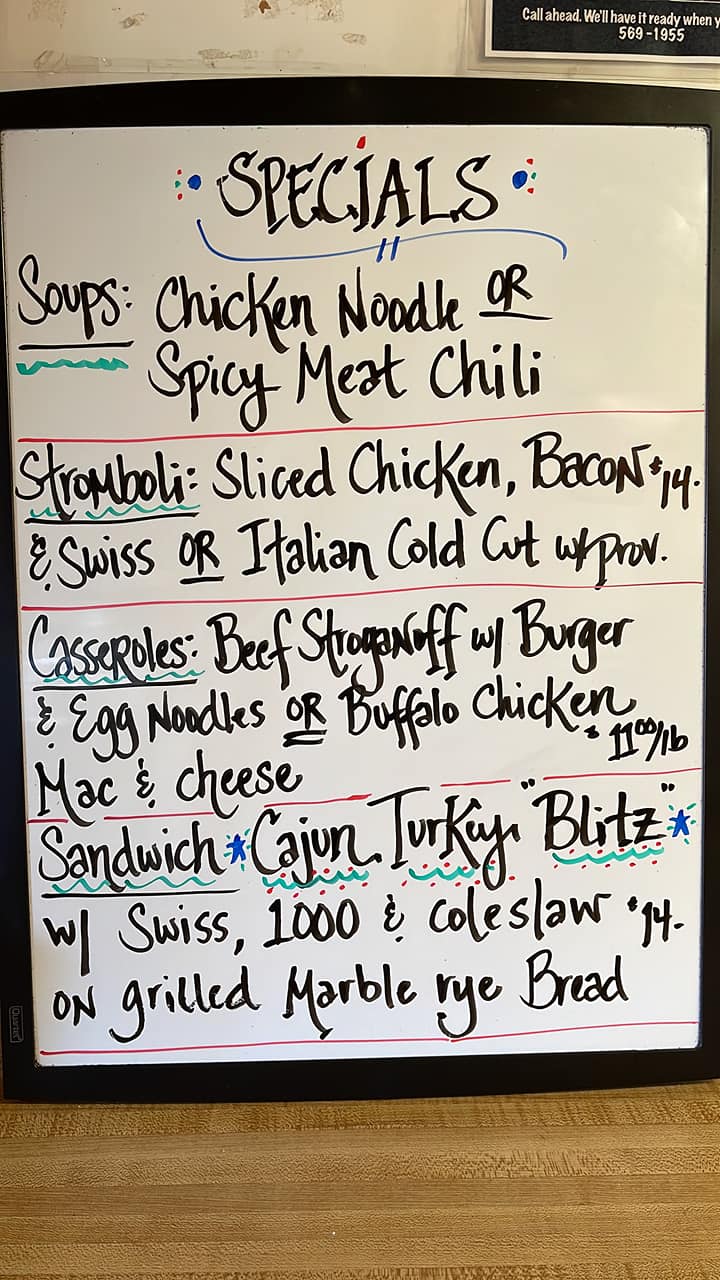 Call ahead. We'll have it ready when
569-1955
SPECIALS
Soups: Chicken Noodle OR
Spicy Meat Chili
Stromboli: Sliced Chicken, Bacon $14.
& Swiss OR Italian Cold Cut w/prov.
Casseroles: Beef Stroganoff w/ Burger
& Egg Noodles OR Buffalo Chicken
$11.00/lb
Mac & cheese
Sandwich ★ Cajun Turkey "Blitz" ★
w/ Swiss, 1000 & coleslaw $14-
on grilled Marble rye Bread
Quartet